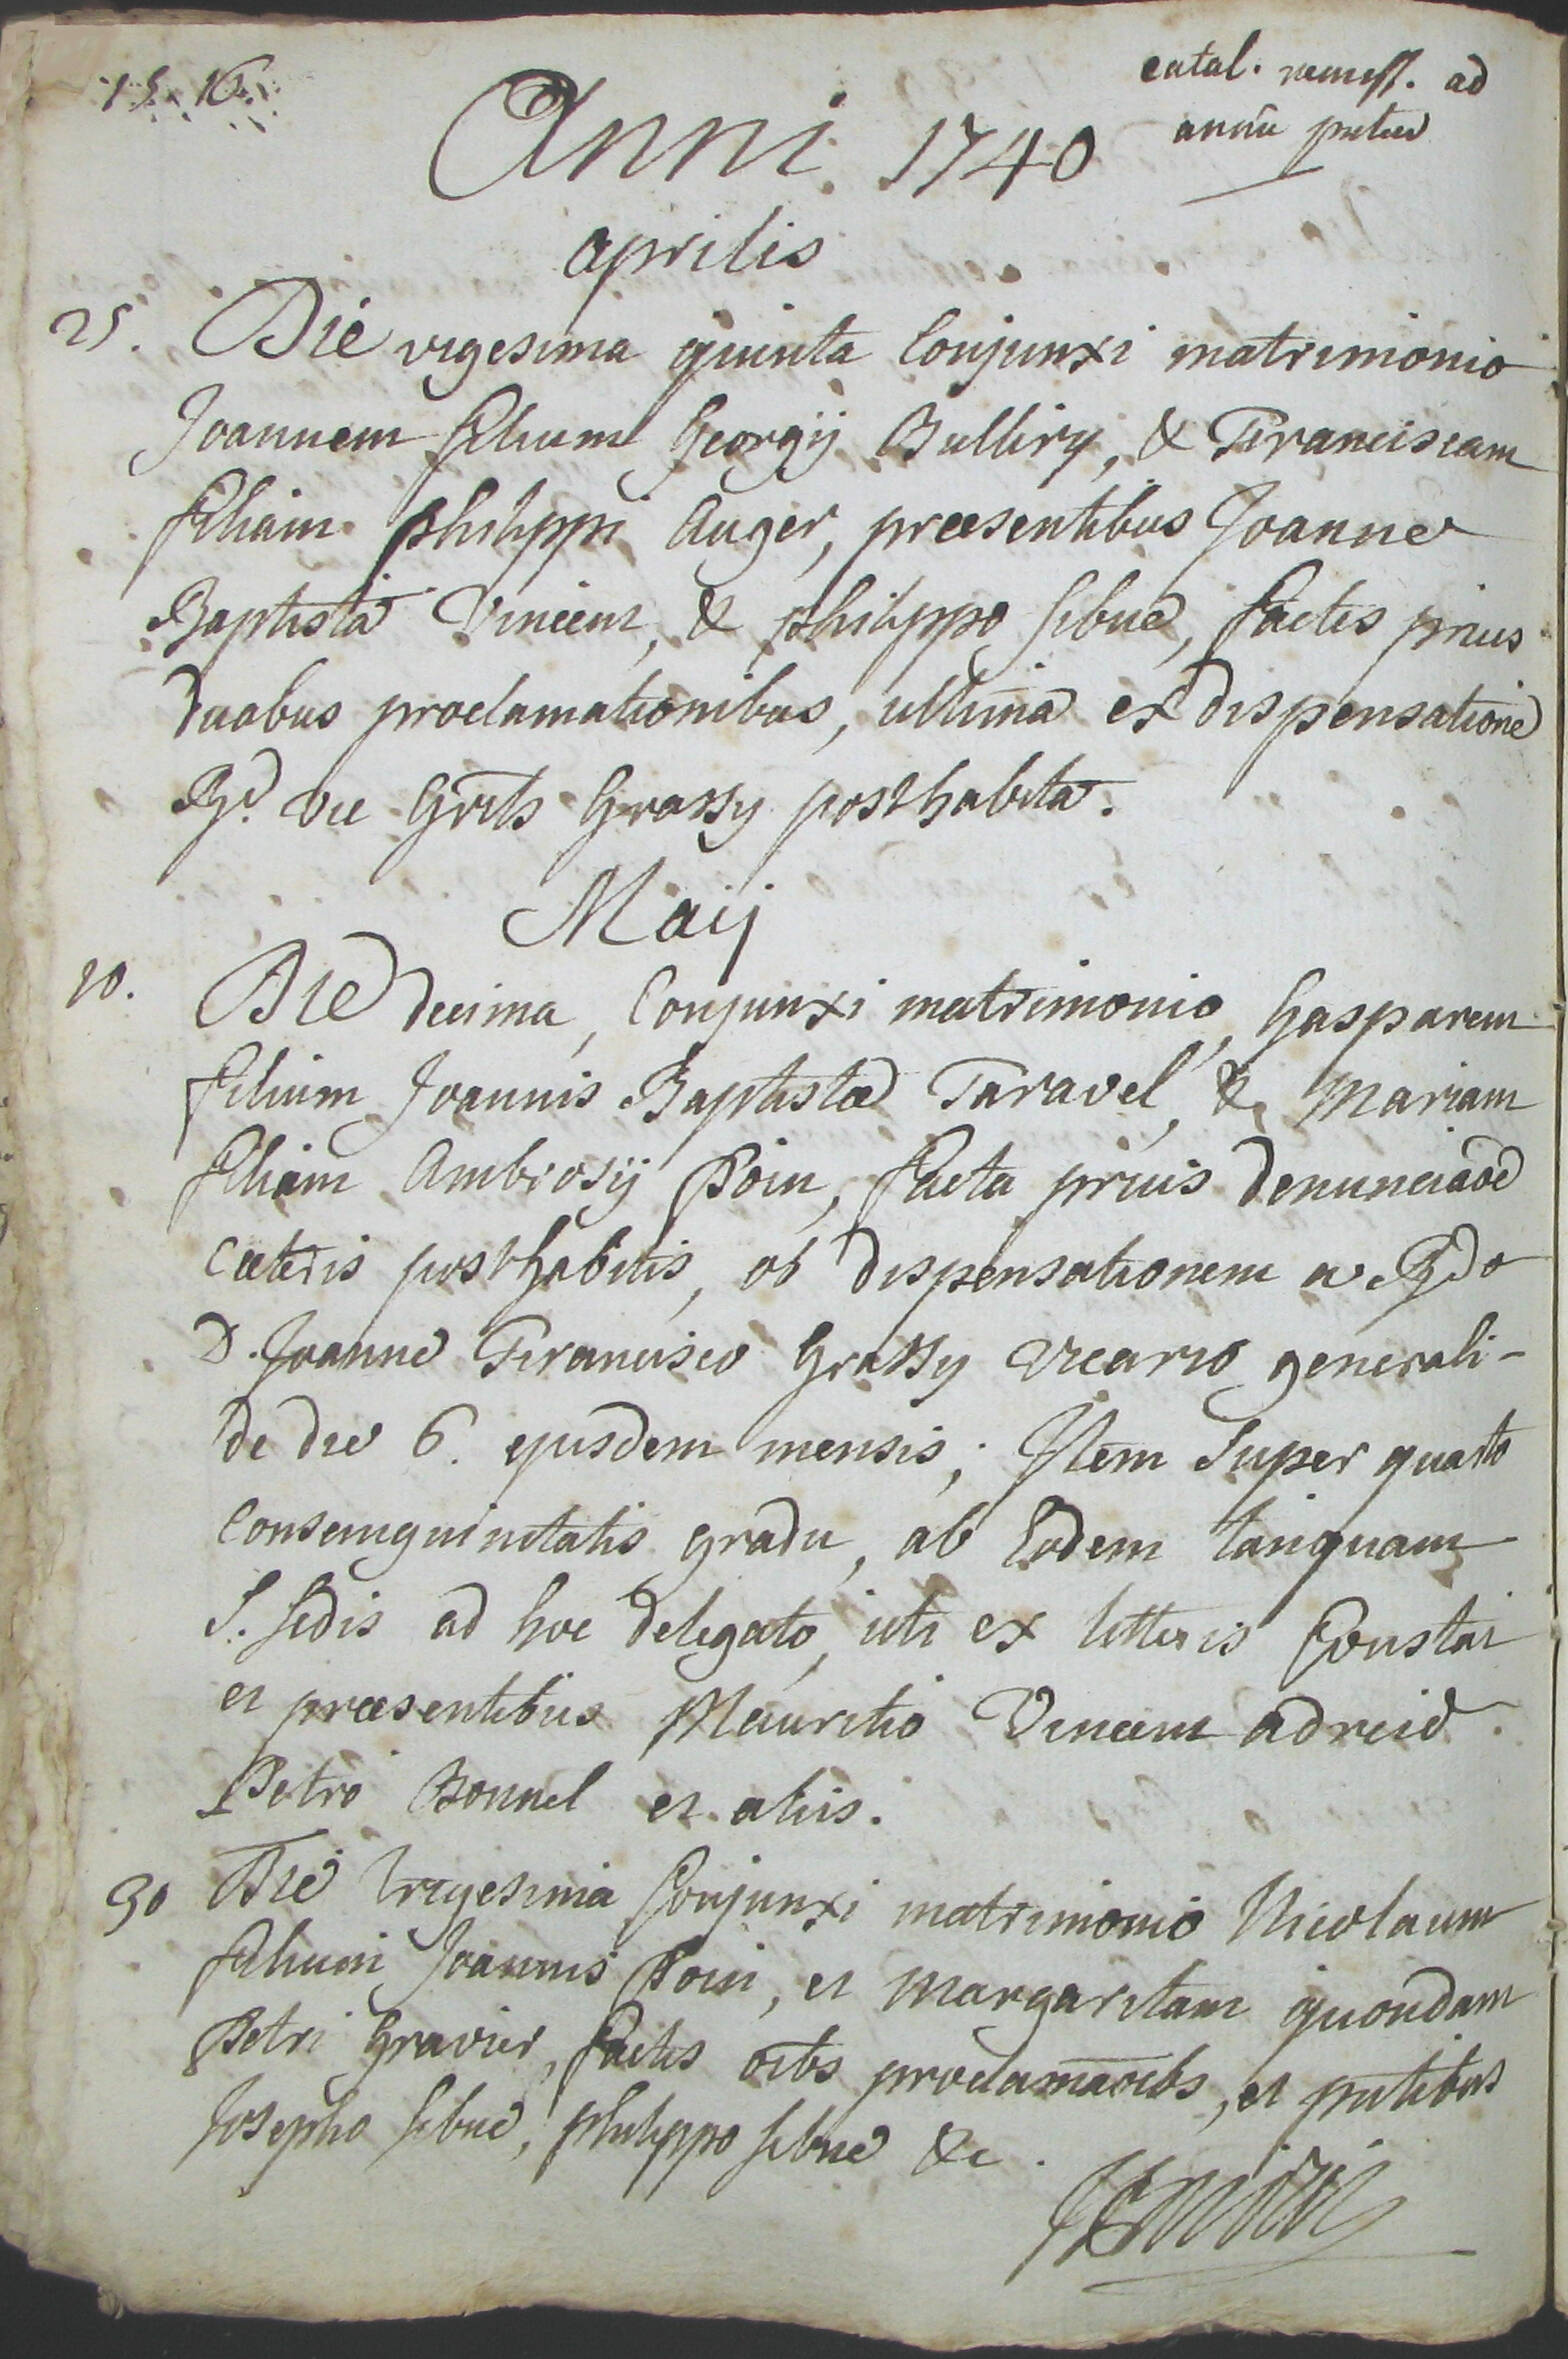 15. 16.
catal. remiss. ad
annū
Anni 1740
aprilis
25. Die vigesima quinta Conjunxi matrimonio
Joannem filium Georgij Bulliry, & Franciscam
filiam philippi Auger, præsentibus Joanne
Baptista Vincent, & philippo sibue, factis prius
duabus proclamationibus, ultima ex dispensatione
Rd. vic Grlis Grassy posthabita.
Maij
10. Die decima, Conjunxi matrimonio, Gasparem
filium Joannis Baptistæ Taravel, & Mariam
filiam Ambrosij Poin, facta prius denunciaoē
cæteris posthabitis, ob dispensationem a Rdo
D. Joanne Francisco Grassy vicario generali-
de die 6. ejusdem mensis; Item Super quarto
Consanguinitatis gradu, ab Eodem tanquam
S. sedis ad hoc delegato, uti ex litteris Constat
et præsentibus Mauritio Vincent
Petro Bonnel et aliis.
30 Die trigesima Conjunxi matrimonio Nicolaum
filium Joannis Poin, et Margaritam quondam
Petri Gravier, factis oībs proclamaōibs, et pntibus
Josepho sibue, philippo sibue &c.